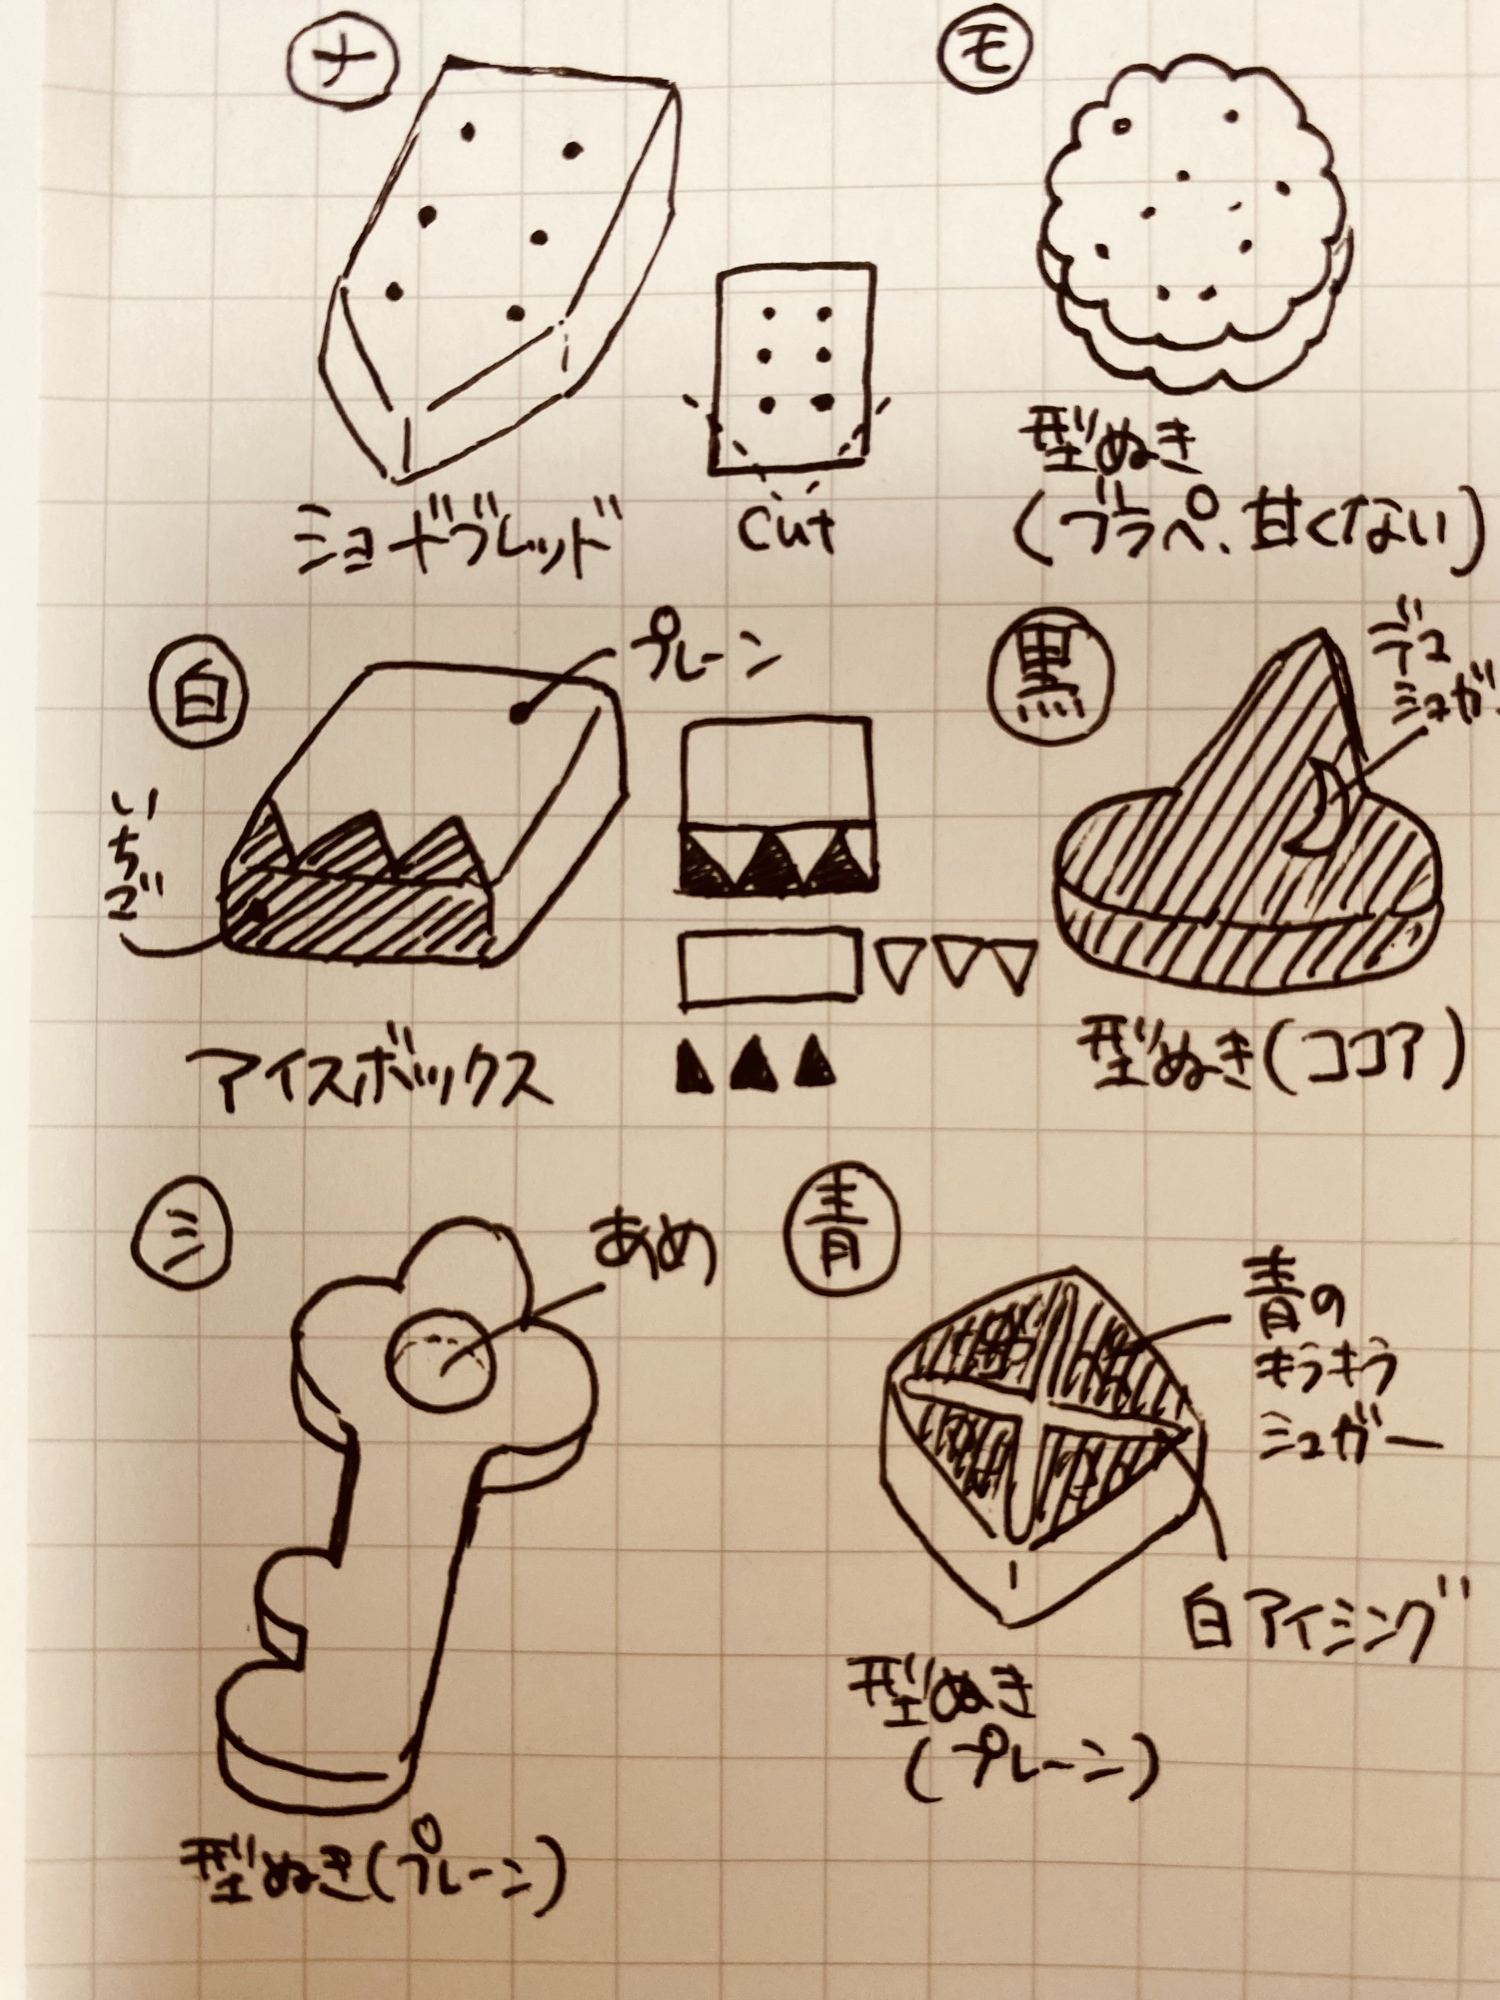 ナ
モ
ショートブレッド
cut
型ぬき
(ブラペ、甘くない)
白
プレーン
いちご
アイスボックス
黒
デコ
シュガー
型ぬき(ココア)
ミ
あめ
型ぬき(プレーン)
青
青の
キラキラ
シュガー
白アイシング
型ぬき
(プレーン)